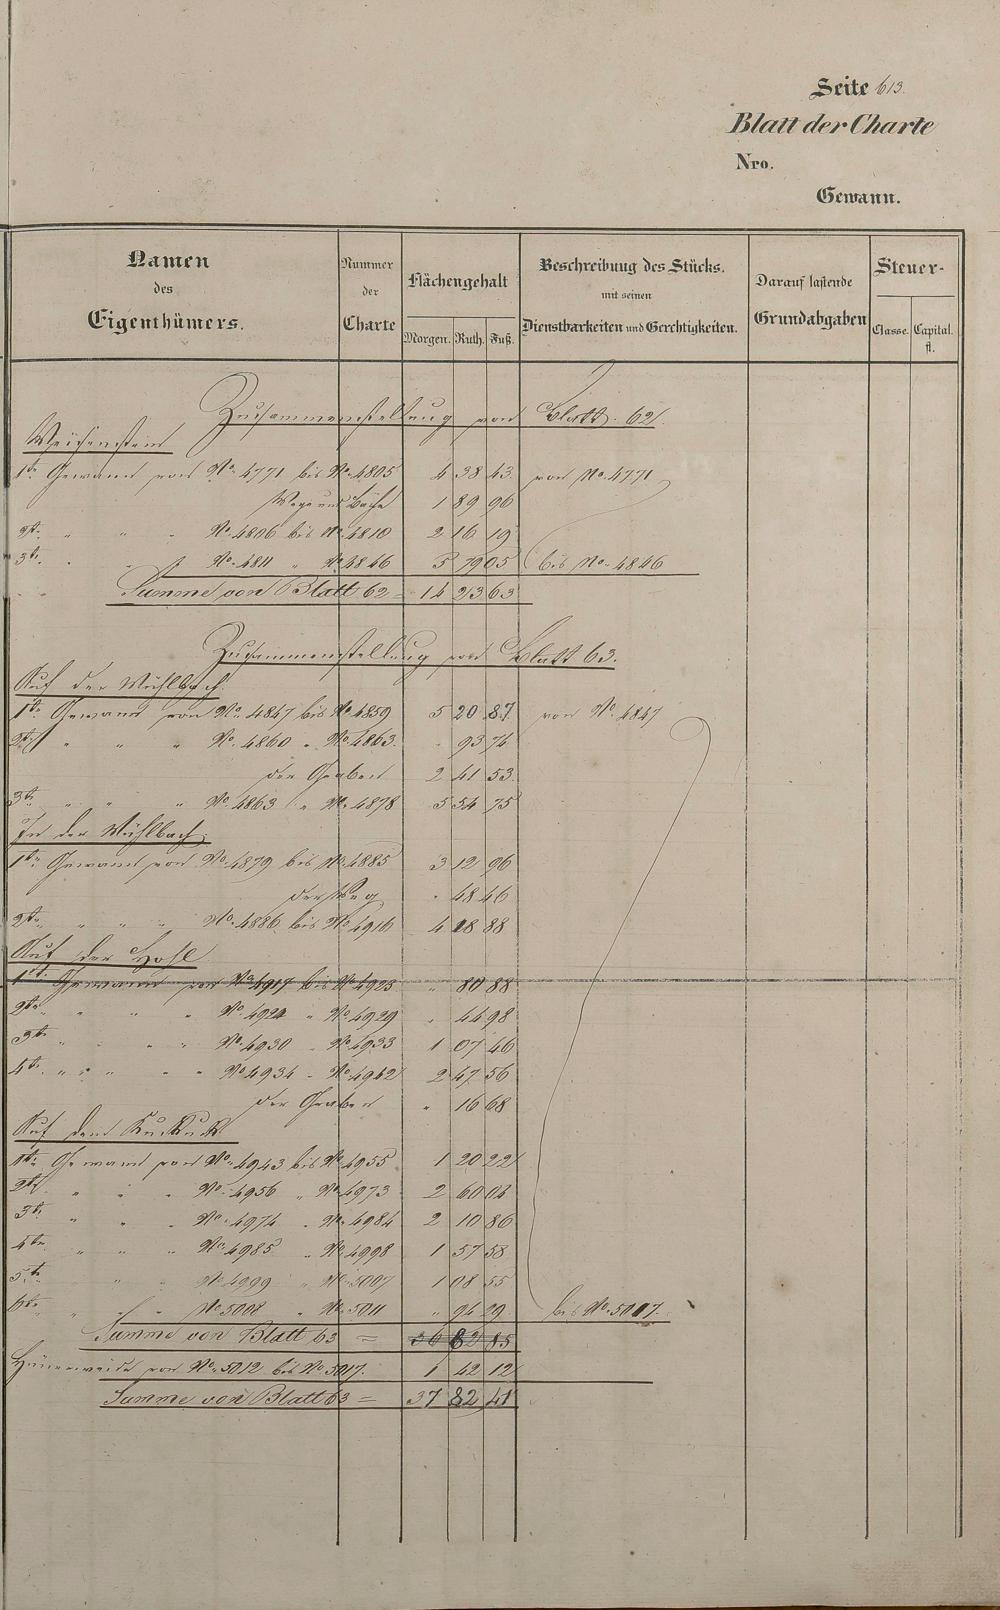 Seite 613.
Blatt der Charte
Nro.
Gewann.
Namen
des
Eigenthümers.
Nummer
der
Charte
Flächengehalt
Morgen. Ruth. Fuß.
Beschreibung des Stücks.
mit seinen
Dienstbarkeiten und Gerechtigkeiten.
Darauf lastende
Grundabgaben
Steuer-
Classe. Capital.
fl.
Zusammenstellung von Blatt: 62.
1te Gewann von No. 4771 bis No. 4805 4 38 43 von No. 4771
Wege und Bäche 1 89 96
2te " " " No. 4806 bis No. 4810 2 16 19
3te " " " No. 4811 " No. 4846 5 79 05 bis No. 4846
Summe von Blatt 62 = 14 23 63
Zusammenstellung von Blatt 63.
Auf der Mühlbach.
1te Gewann von No. 4847 bis No. 4859 5 20 87 von No. 4847
2te " " " No. 4860 " No. 4863. " 93 74
der Graben 2 41 53
3te " " " No. 4863 " No. 4878 5 54 75
In der Mühlbach.
1te Gewann von No. 4879 bis No. 4885 3 12 96
der Weg " 48 46
2te " " " No. 4886 bis No. 4916 4 28 88
Auf der Hohl
1te Gewann von No. 4917 bis No. 4923 " 80 88
2te " " " No. 4924 " No. 4929 " 44 98
3te " " " No. 4930 " No. 4933 1 07 46
4te " " " No. 4934 " No. 4942 2 47 56
der Graben " 16 68
Auf dem Kuckuck
1te Gewann von No. 4943 bis No. 4955 1 20 22
2te " " " No. 4956 " No. 4973 2 60 04
3te " " " No. 4974 " No. 4984 2 10 86
4te " " " No. 4985 " No. 4998 1 57 58
5te " " No. 4999 " No. 5007 1 08 55
6te " " No. 5008 " No. 5011 " 94 29 bis No. 5017
Summe von Blatt 63 =
von No. 5012 bis No. 5017. 1 42 12
Summe von Blatt 63 = 37 82 41